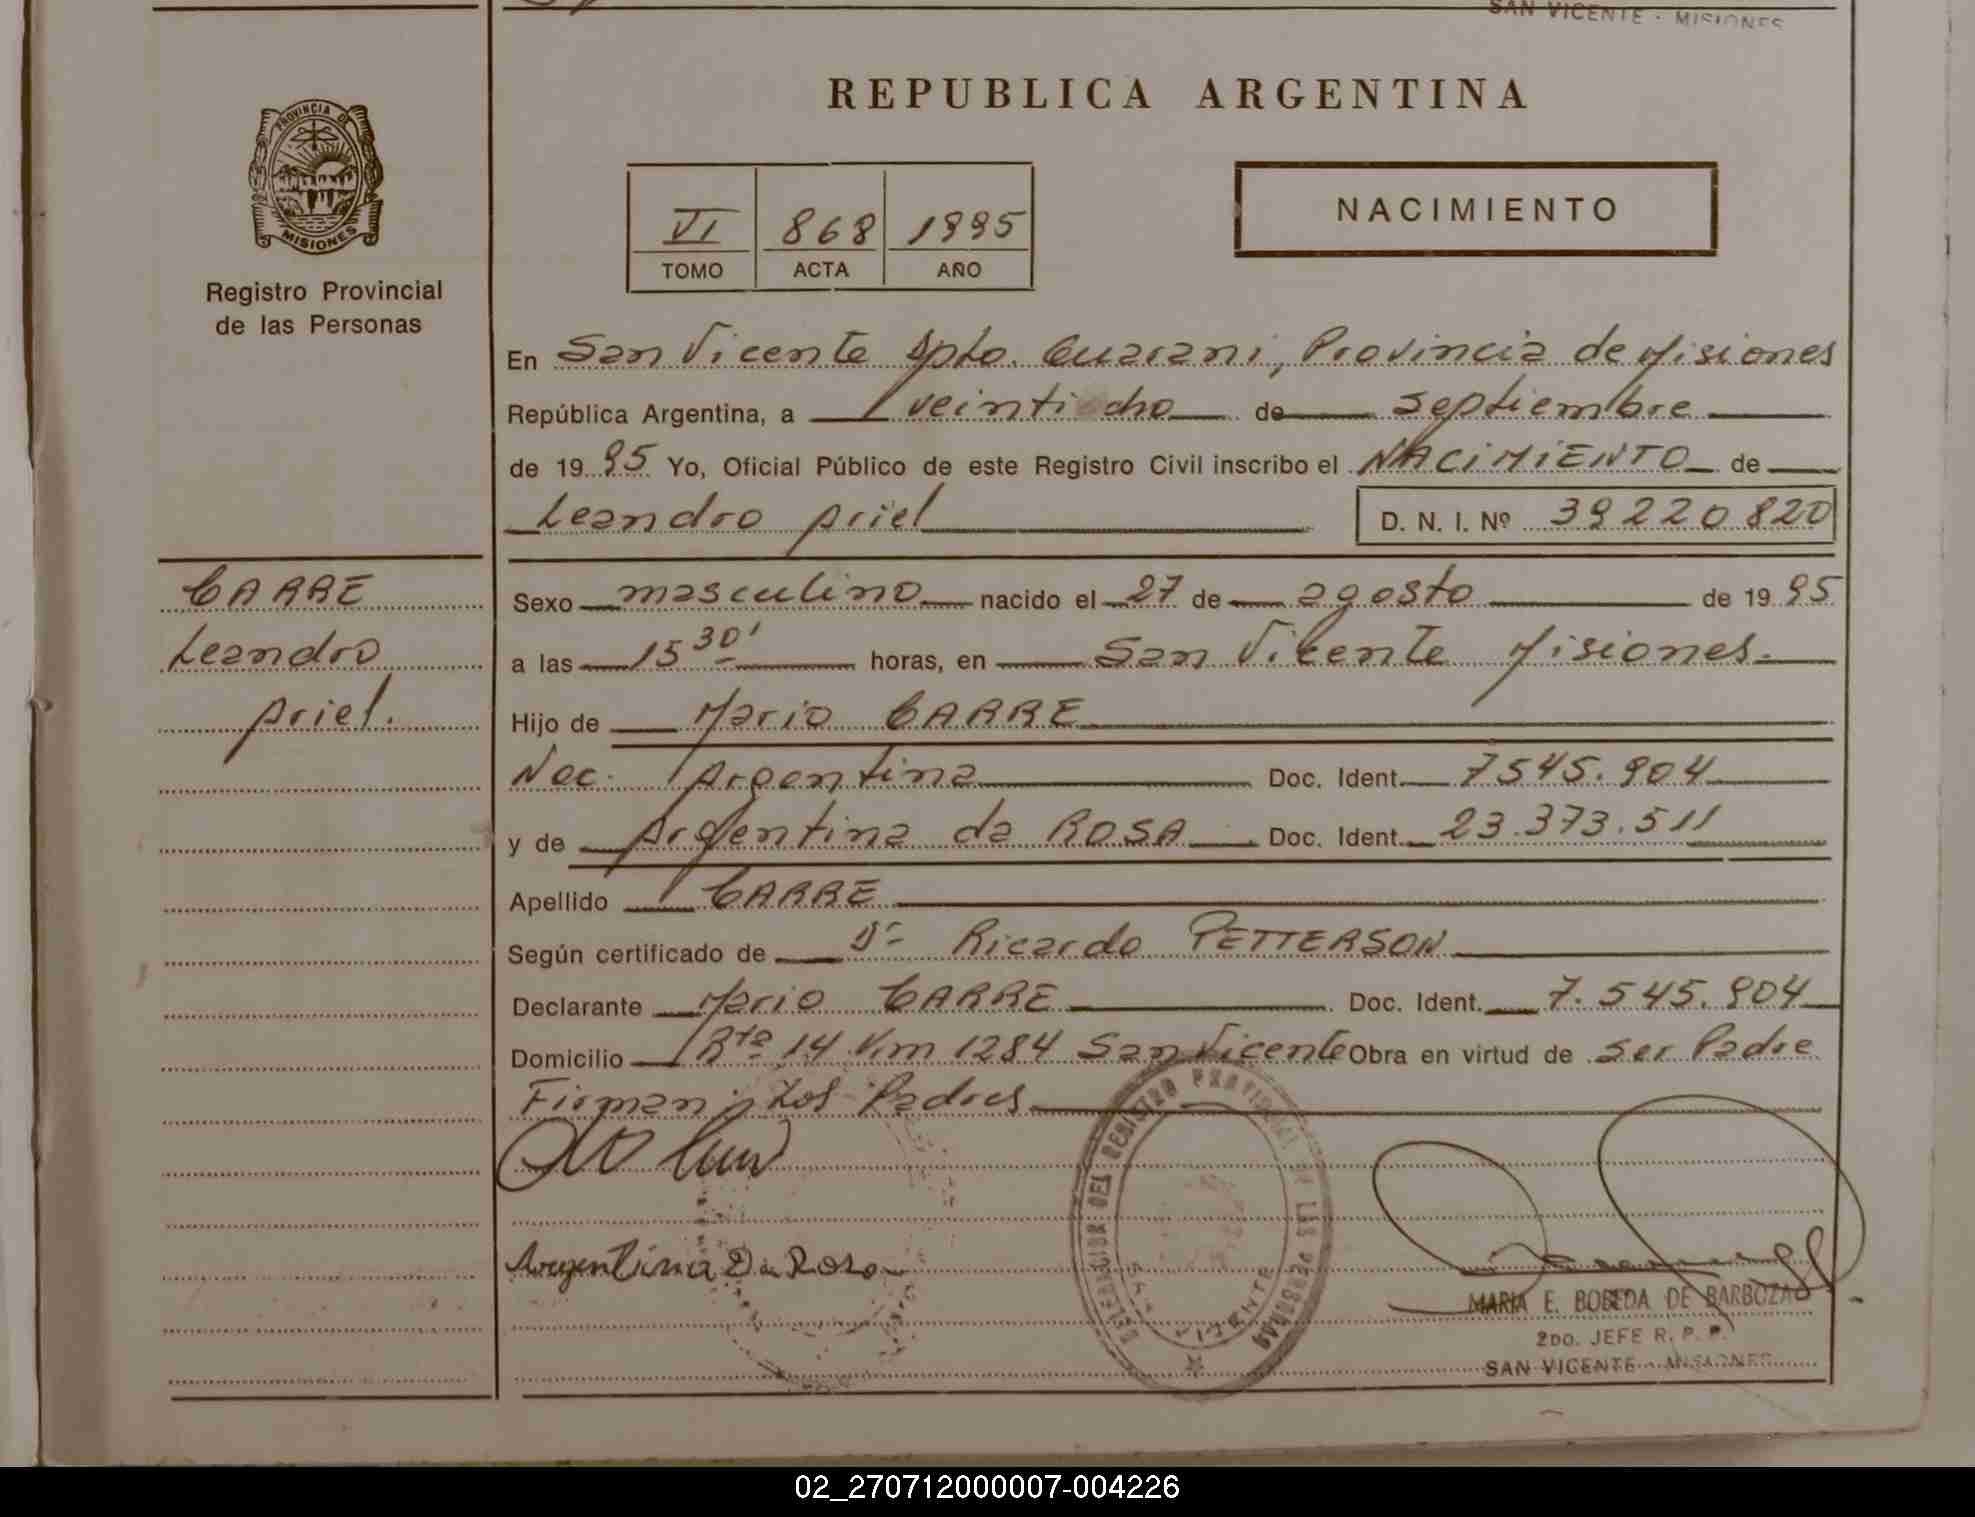 SAN VICENTE - MISIONES
PROVINCIA DE
MISIONES
Registro Provincial
de las Personas
REPUBLICA ARGENTINA
VI 868 1995
TOMO ACTA AÑO
NACIMIENTO
En San Vicente Dpto. Guarani, Provincia de Misiones
República Argentina, a veintiocho de septiembre
de 1995 Yo, Oficial Público de este Registro Civil inscribo el NACIMIENTO de
Leandro Ariel D. N. I. Nº 39220820
CARRE
Leandro
Ariel.
Sexo masculino nacido el 27 de agosto de 1995
a las 15 30' horas, en San Vicente Misiones.
Hijo de Mario CARRE
Nac. Argentina Doc. Ident. 7545.904
y de Argentina da ROSA Doc. Ident. 23.373.511
Apellido CARRE
Según certificado de Dr Ricardo PETTERSON
Declarante Mario CARRE Doc. Ident. 7.545.904
Domicilio Rta 14 Km 1284 San Vicente Obra en virtud de ser Padre
Firman: Los Padres
Argentina Da Rosa
DELEGACION DEL REGISTRO PROVINCIAL DE LAS PERSONAS
SAN VICENTE
MARIA E. BOBEDA DE BARBOZA
2DO. JEFE R. P. P.
SAN VICENTE - MISIONES
02_270712000007-004226